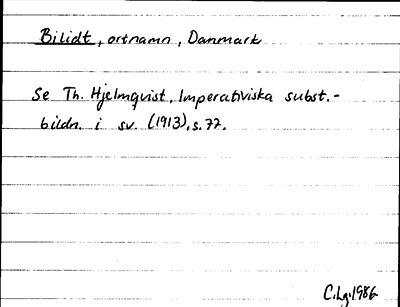 Bilidt, ortnamn, Danmark
Se Th. Hjelmqvist, Imperativiska subst.-
bildn. i sv. (1913), s. 77.
C.Lg.1986